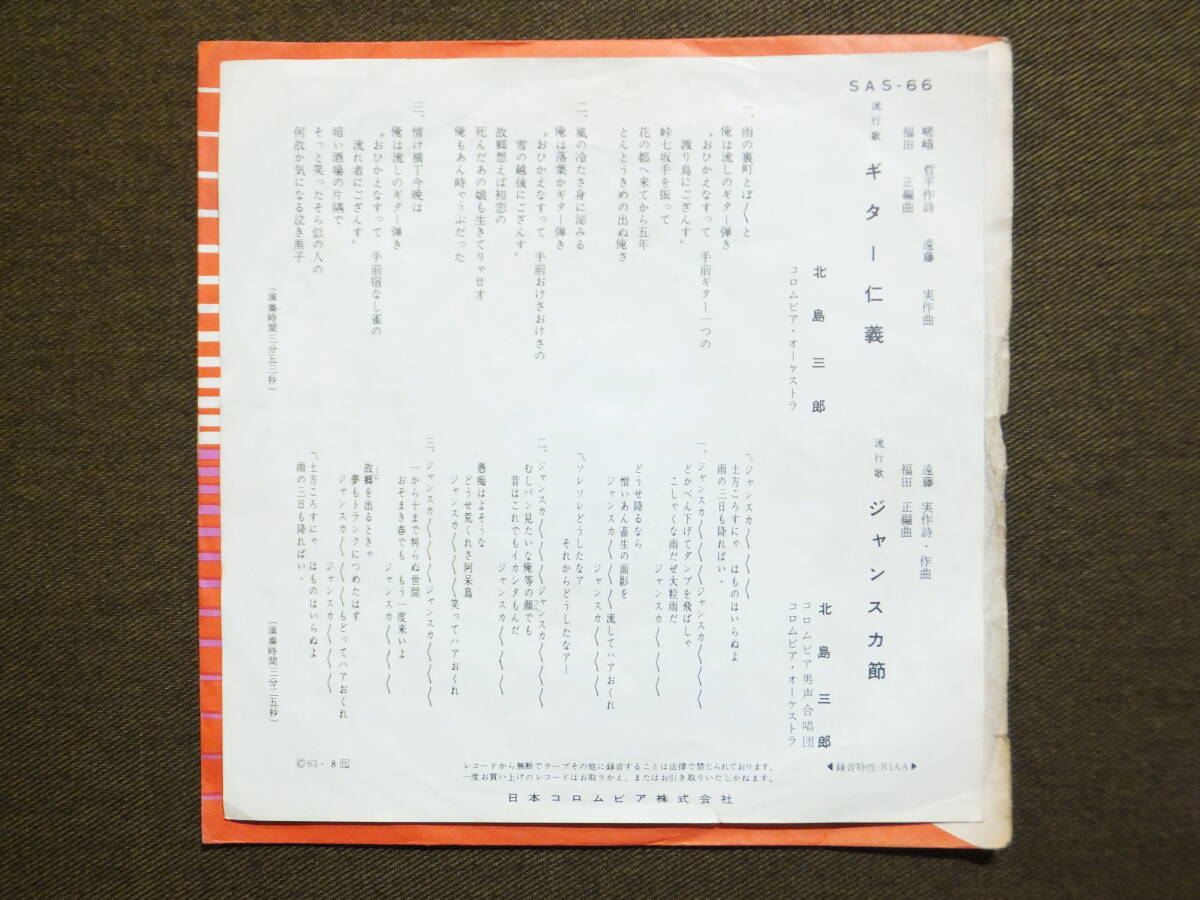 SAS-66
嵯峨 哲平作詩 遠藤 実作曲
福田 正編曲
流行歌 ギター仁義
北島三郎
コロムビア・オーケストラ
一、雨の裏町とぼ〱と
俺は流しのギター弾き
〝おひかえなすって 手前ギター一つの
渡り鳥にござんす〟
峠七坂手を振って
花の都へ来てから五年
とんとうきめの出ぬ俺さ
二、風の冷たさ身に泌みる
俺は落葉かギター弾き
〝おひかえなすって 手前おけさおけさの
雪の越後にござんす〟
故郷想えば初恋の
死んだあの娘も生きてりゃ廿才
俺もあん時ゃうぶだった
三、情け横丁今晩は
俺は流しのギター弾き
〝おひかえなすって 手前宿なし雀の
流れ者にござんす〟
暗い酒場の片隅で
そっと笑ったそら似の人の
何故か気になる泣き黒子
(演奏時間三分五三秒)
遠藤 実作詩・作曲
福田 正編曲
流行歌 ジャンスカ節
北島三郎
コロムビア男声合唱団
コロムビア・オーケストラ
〽ジャンスカ〱〱〱
土方ころすにゃ はものはいらぬよ
雨の三日も降ればい、
一、ジャンスカ〱〱〱ジャンスカ〱〱〱
どかべん下げてダンプを飛ばしゃ
こしゃくな雨だぜ大粒雨だ
ジャンスカ〱〱〱
どうせ降るなら
憎いあん畜生の面影を
ジャンスカ〱〱〱流してハアおくれ
ジャンスカ〱〱〱
〽ソレソレどうしたなア
それからどうしたなアー
二、ジャンスカ〱〱〱ジャンスカ〱〱〱
むしパン見たいな俺等の顔でも
昔はこれでもイカシタもんだ
ジャンスカ〱〱〱
愚痴はよそうな
どうせ荒くれさ阿呆鳥
ジャンスカ〱〱〱笑ってハアおくれ
三、ジャンスカ〱〱〱ジャンスカ〱〱〱
一から十まで判らぬ世間
おそまき春でも もう一度来いよ
ジャンスカ〱〱〱
故郷を出るときゃ
夢もトランクにつめたはず
ジャンスカ〱〱〱もどってハアおくれ
ジャンスカ〱〱〱
〽土方ころすにゃ はものはいらぬよ
雨の三日も降ればい、
(演奏時間三分二五秒)
◀録音特性:RIAA▶
レコードから無断でテープその他に録音することは法律で禁じられております。
一度お買い上げのレコードはお取りかえ、またはお引き取りいたしかねます。
日本コロムビア株式会社
©63・8